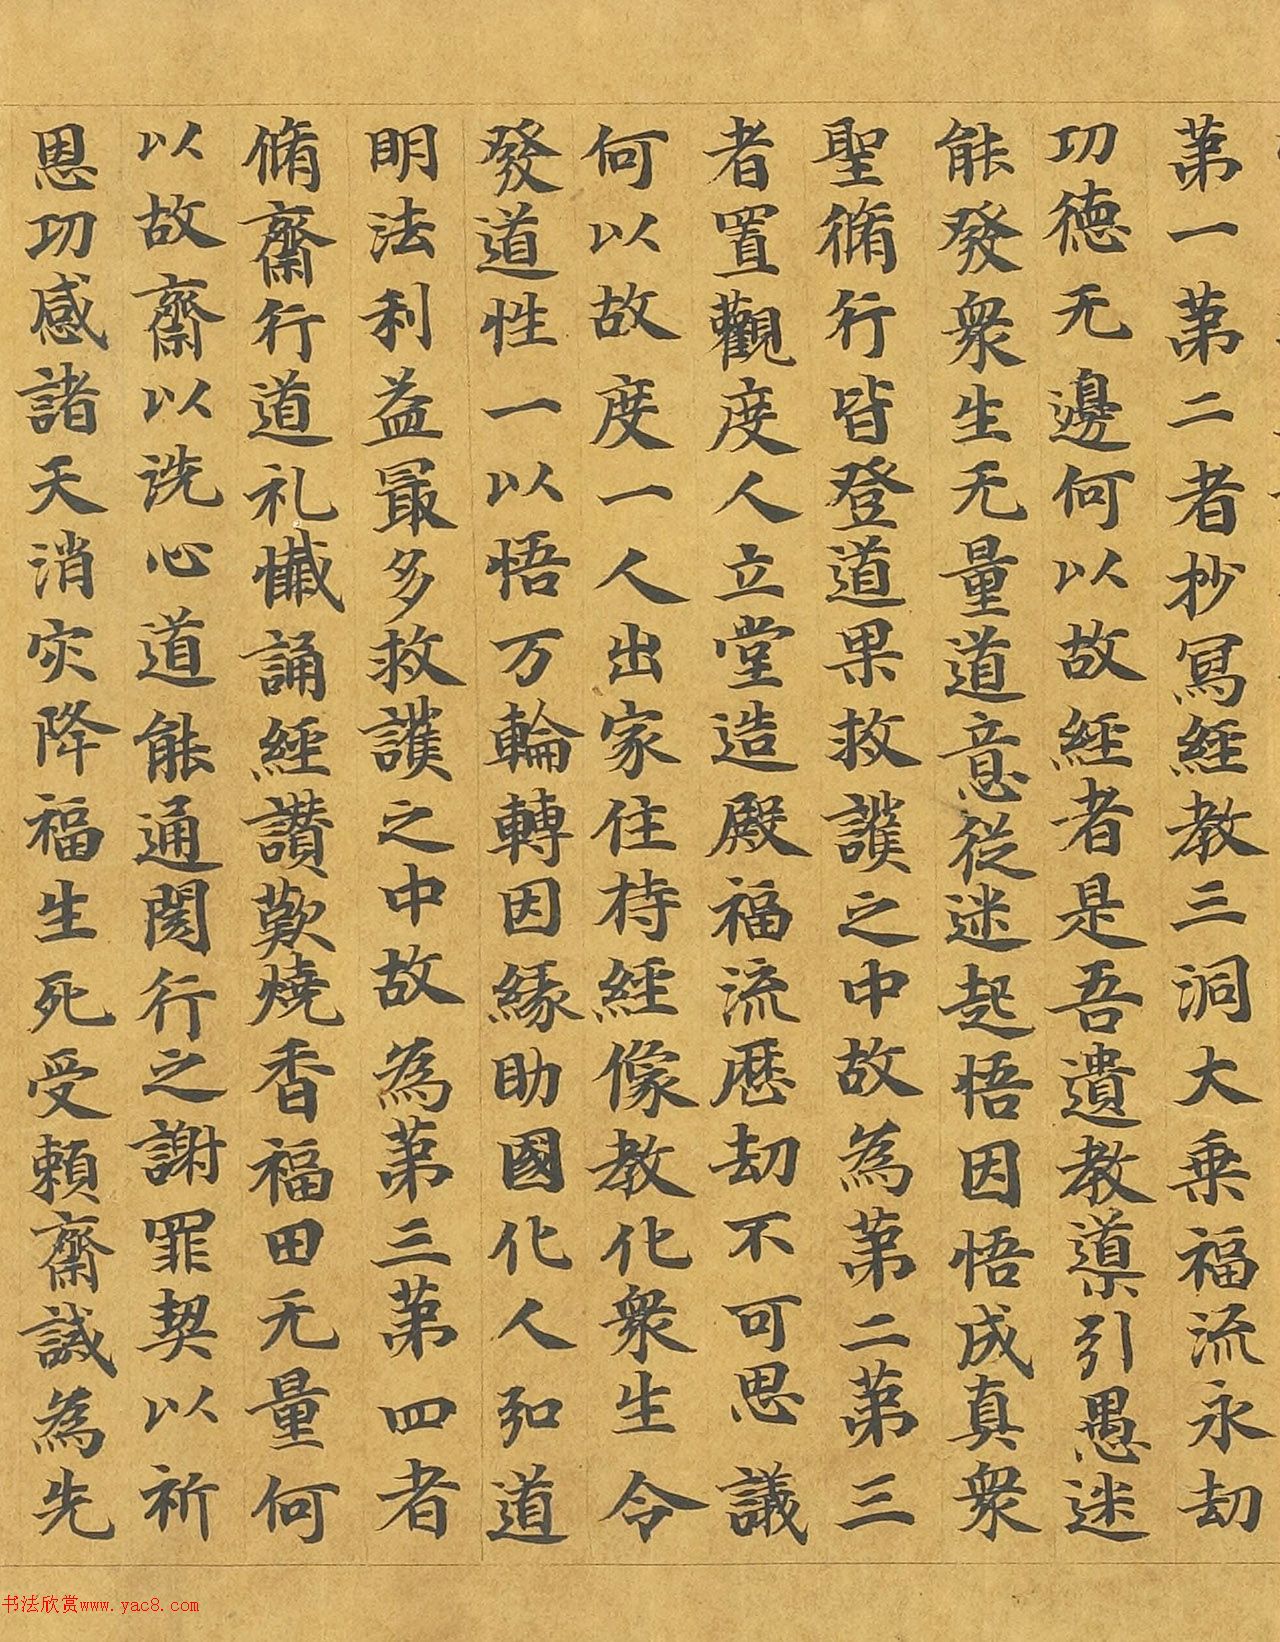 第一第二者抄寫經教三洞大乗福流永劫
功德无邊何以故經者是吾遺教道引愚迷
能發衆生无量道意從迷起悟因悟成真衆
聖脩行皆登道果救護之中故為第二第三
者置觀度人立堂造殿福流歷劫不可思議
何以故度一人出家住持經像教化衆生令
發道性一以悟万輪轉因緣助國化人弘道
明法利益最多救護之中故為第三第四者
脩齋行道礼懴誦經讃歎燒香福田无量何
以故齋以洗心道能通閡行之謝罪契以祈
恩功感諸天消灾降福生死受賴齋誡為先
书法欣赏www.yac8.com